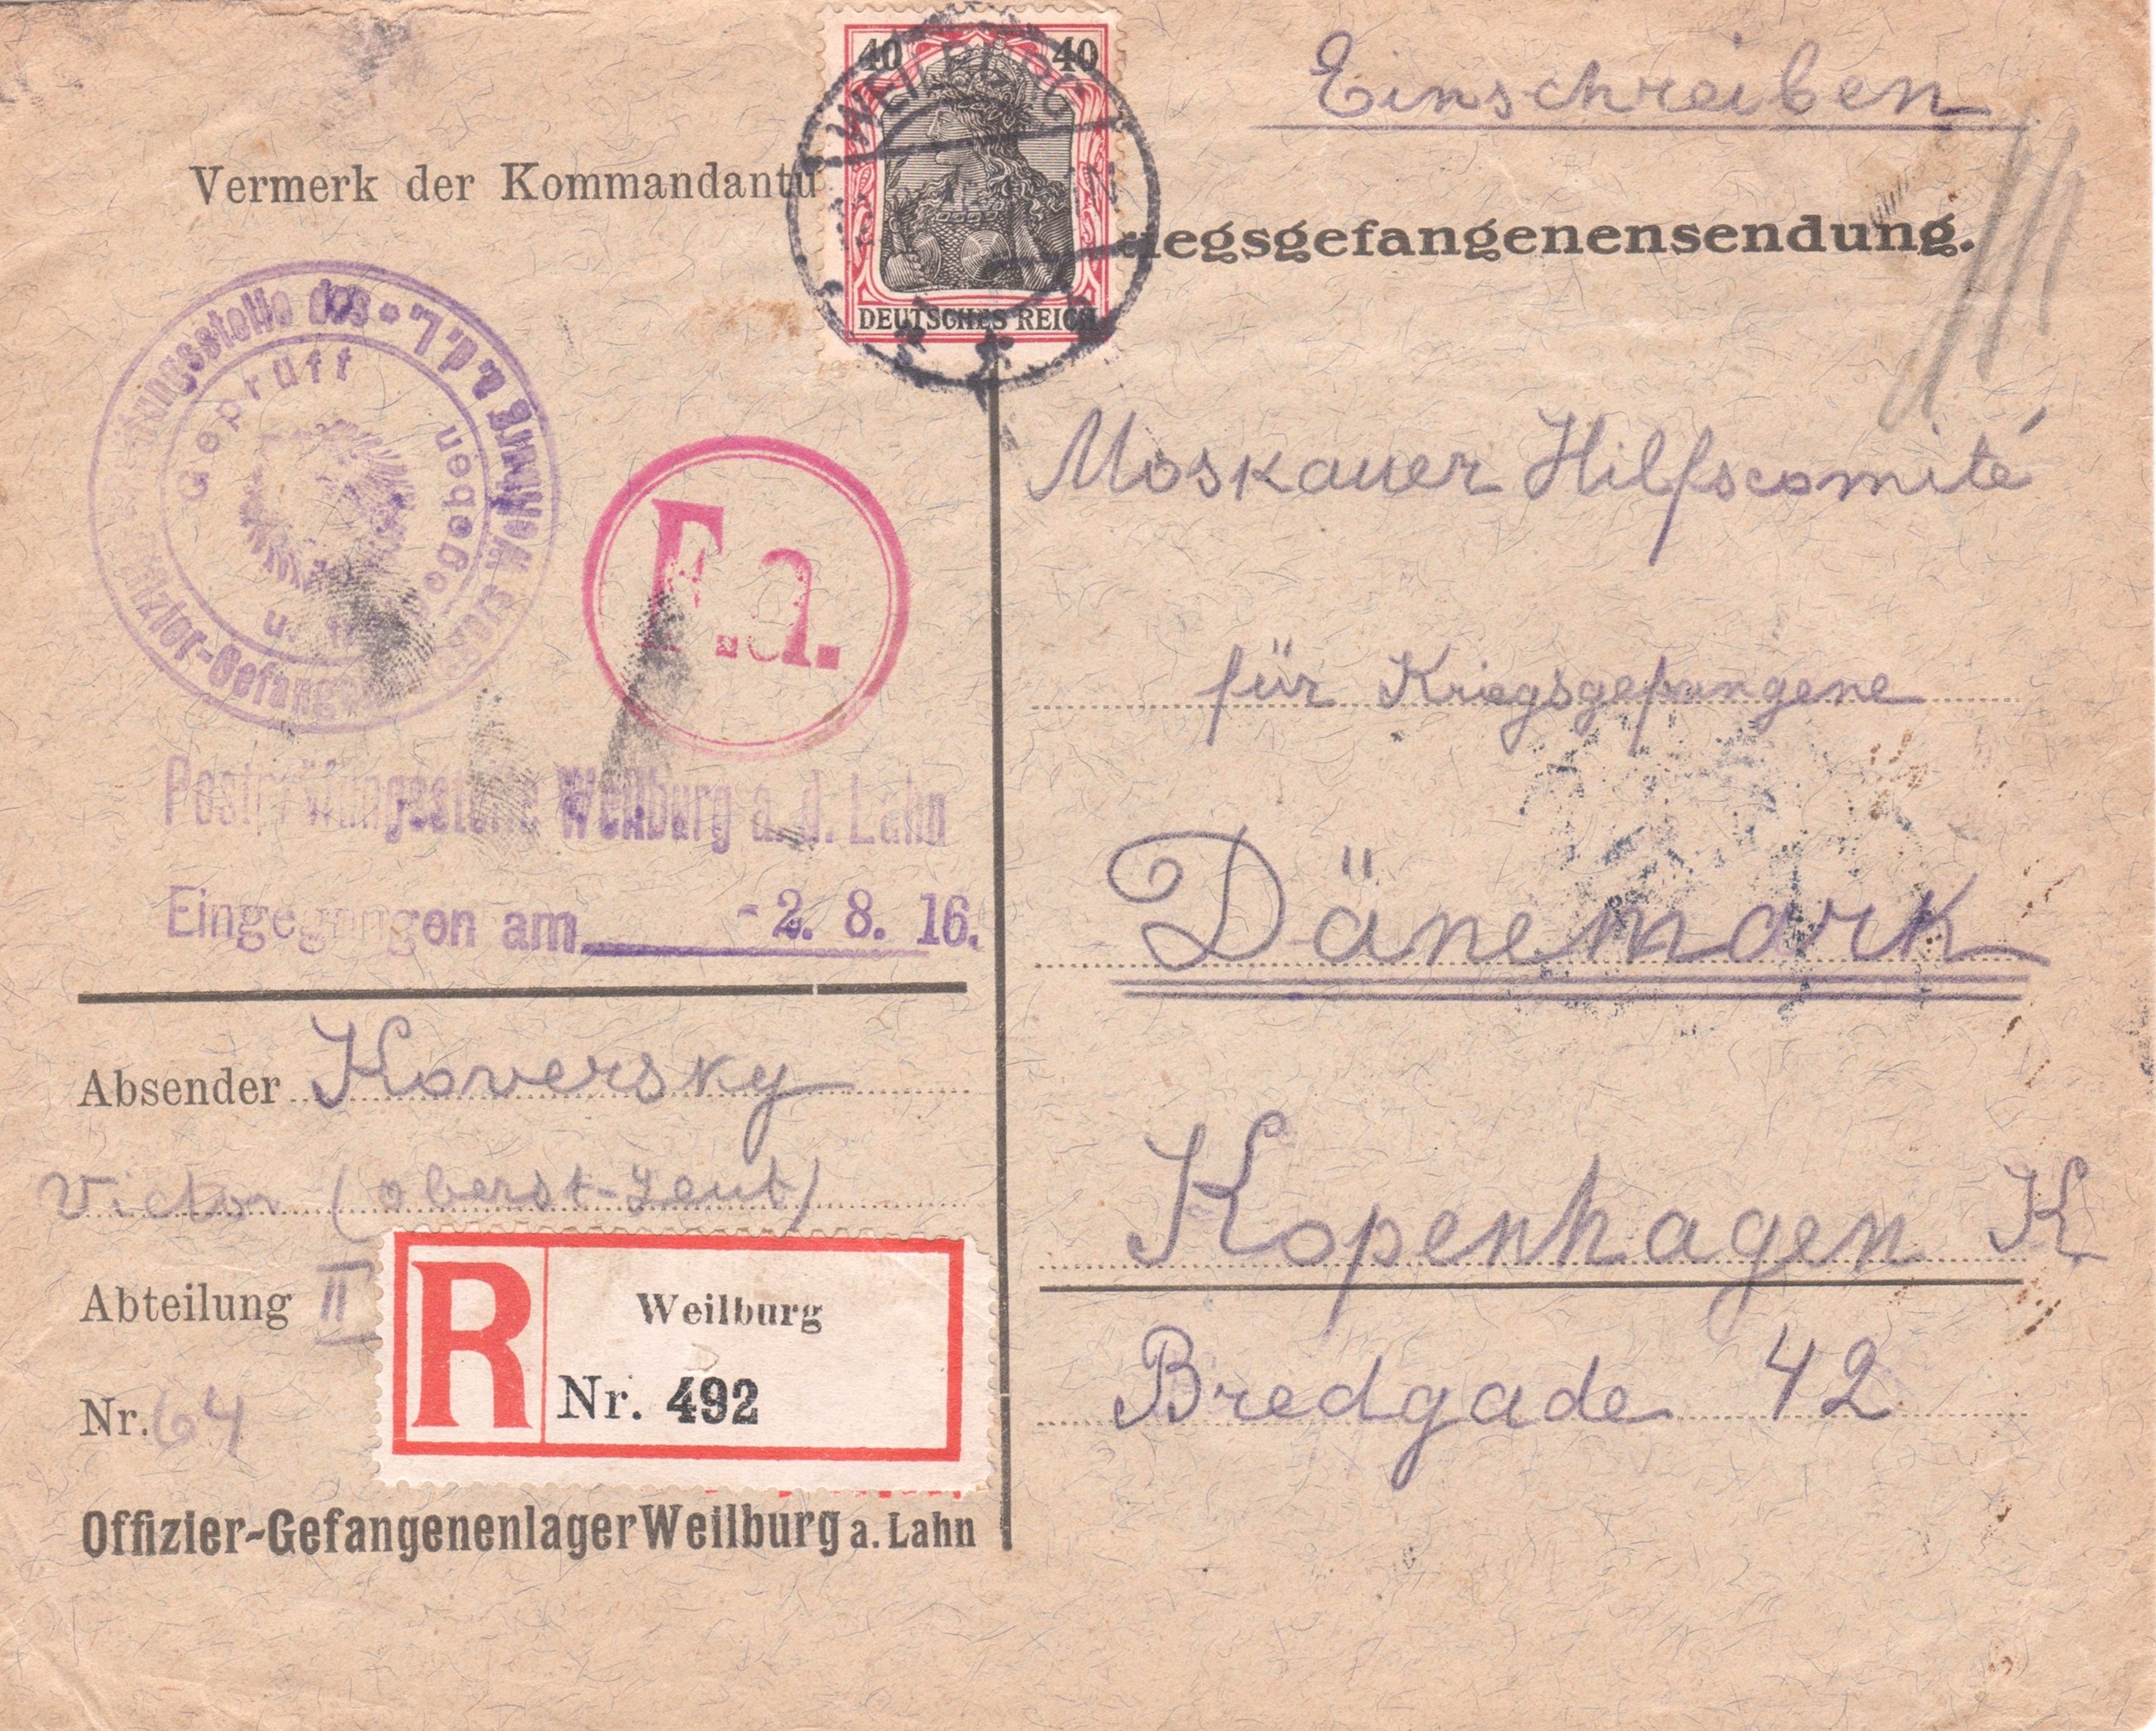 Einschreiben
40 40
WEILBURG
DEUTSCHES REICH
Vermerk der Kommandantu
iegsgefangenensendung.
Geprüft
F.a.
Postprüfungsstelle Weilburg a. d. Lahn
Eingegangen am - 2. 8. 16.
Absender Koversky
Victor (oberst-Leut)
Abteilung II
Nr. 64
R Weilburg
Nr. 492
Offizier-Gefangenenlager Weilburg a. Lahn
Moskauer Hilfscomité
für Kriegsgefangene
Dänemark
Kopenhagen K
Bredgade 42